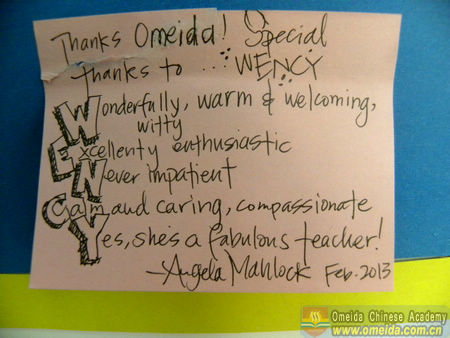 Thanks Omeida! Special
thanks to ... WENCY
Wonderfully, warm & welcoming,
witty
Excellenty enthusiastic
Never impatient
Calm and caring, compassionate
Yes, she's a fabulous teacher!
-Angela Mahlock Feb. 2013
Omeida Chinese Academy
www.omeida.com.cn